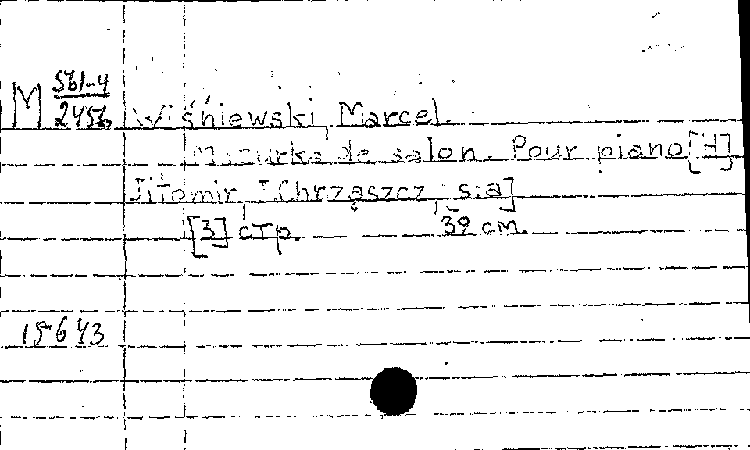 M 561-4
2456
Wiśniewski, Marcel.
Mazurka de salon. Pour piano [H]
Jitomir, I. Chrząszcz, s.a]
[3] стр. 39 см.
15643